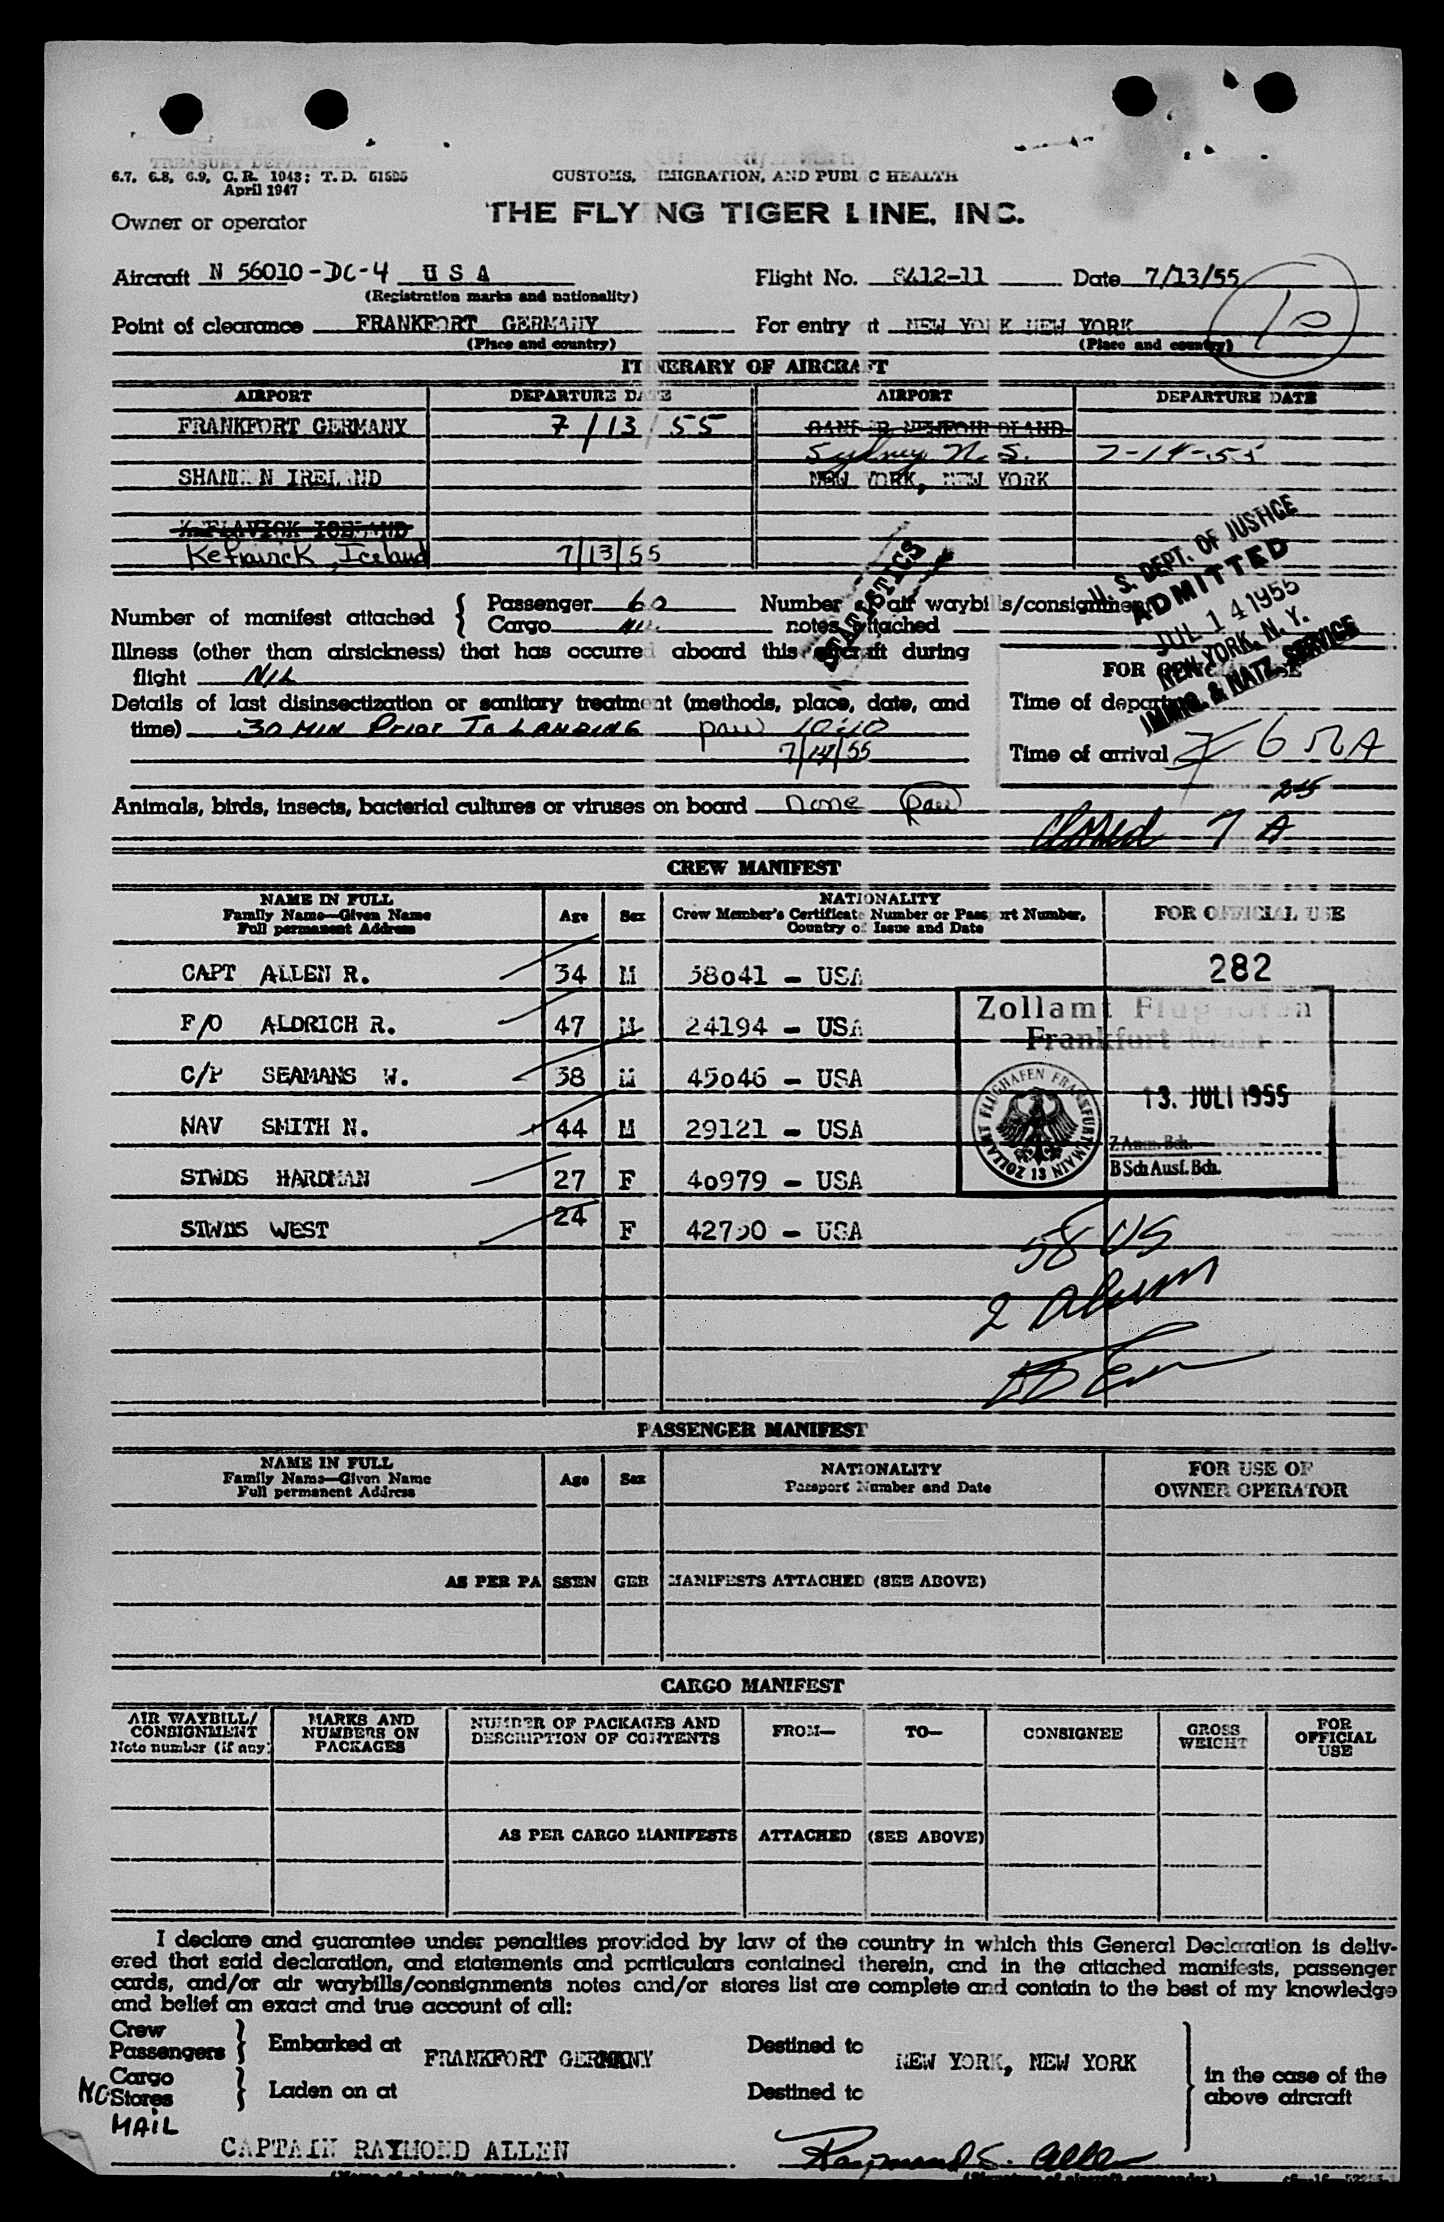 TREASURY DEPARTMENT
6.7, 6.8, 6.9, C.R. 1943; T.D. 51525
April 1947
CUSTOMS, IMIGRATION, AND PUBLIC HEALTH
Owner or operator THE FLYING TIGER LINE, INC.
Aircraft N 56010-DC-4 USA Flight No. 8412-11 Date 7/13/55
(Registration marks and nationality)
Point of clearance FRANKFORT GERMANY For entry at NEW YORK NEW YORK
(Place and country) (Place and country)
10
ITINERARY OF AIRCRAFT
AIRPORT DEPARTURE DATE AIRPORT DEPARTURE DATE
FRANKFORT GERMANY 7/13/55 GANDER NEWFOUNDLAND
Sydney N.S. 7-14-55
SHANNON IRELAND NEW YORK, NEW YORK
KEFLAVICK ICELAND
Keflavick, Iceland 7/13/55
STATISTICS
U.S. DEPT. OF JUSTICE
ADMITTED
JUL 14 1955
NEW YORK, N.Y.
IMMIG. & NATZ. SERVICE
Number of manifest attached { Passenger 60 Number air waybills/consignment
Cargo Nil notes attached
Illness (other than airsickness) that has occurred aboard this aircraft during
flight NIL
FOR OFFICIAL USE
Details of last disinsectization or sanitary treatment (methods, place, date, and
time) 30 MIN PRIOR TO LANDING paw 10:10
7/14/55
Time of departure
Time of arrival
Animals, birds, insects, bacterial cultures or viruses on board none paw
Closed 7 25 A
CREW MANIFEST
NAME IN FULL
Family Name—Given Name
Full permanent Address
Age Sex
NATIONALITY
Crew Member's Certificate Number or Passport Number,
Country of Issue and Date
FOR OFFICIAL USE
CAPT ALLEN R. 34 M 38041 - USA 282
F/O ALDRICH R. 47 M 24194 - USA
C/P SEAMANS W. 38 M 45046 - USA
NAV SMITH N. 44 M 29121 - USA
STWDS HARDMAN 27 F 40979 - USA
STWDS WEST 24 F 42750 - USA
Zollamt Flughafen
Frankfurt Main
13. JULI 1955
ZOLLAMT FLUGHAFEN FRANKFURT/MAIN
13
Z Anm. Bch.
B Sch Ausf. Bch.
58 US
2 Alien
PASSENGER MANIFEST
NAME IN FULL
Family Name—Given Name
Full permanent Address
Age Sex
NATIONALITY
Passport Number and Date
FOR USE OF
OWNER OPERATOR
AS PER PASSENGER MANIFESTS ATTACHED (SEE ABOVE)
CARGO MANIFEST
AIR WAYBILL/
CONSIGNMENT
Note number (if any)
MARKS AND
NUMBERS ON
PACKAGES
NUMBER OF PACKAGES AND
DESCRIPTION OF CONTENTS
FROM— TO— CONSIGNEE
GROSS
WEIGHT
FOR
OFFICIAL
USE
AS PER CARGO MANIFESTS ATTACHED (SEE ABOVE)
I declare and guarantee under penalties provided by law of the country in which this General Declaration is deliv-
ered that said declaration, and statements and particulars contained therein, and in the attached manifests, passenger
cards, and/or air waybills/consignments notes and/or stores list are complete and contain to the best of my knowledge
and belief an exact and true account of all:
Crew
Passengers } Embarked at FRANKFORT GERMANY Destined to NEW YORK, NEW YORK
Cargo
NO Stores } Laden on at Destined to
in the case of the
above aircraft
MAIL
CAPTAIN RAYMOND ALLEN Raymond S. Allen
(Name of aircraft commander) (Signature of aircraft commander)